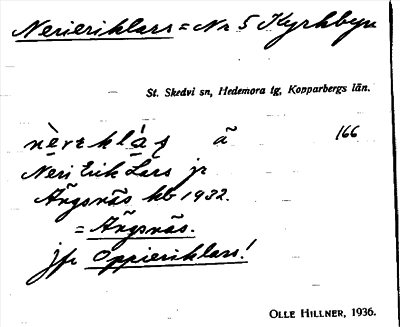 Nerieriklars = Nr 5 Kyrkbyn
St. Skedvi sn, Hedemora tg, Kopparbergs län.
nè̱rɛklá̱ʂ ã 166
Neri Erik Lars jr
Ängsnäs kb 1932.
= Ängsnäs.
jfr Oppieriklars!
OLLE HILLNER, 1936.